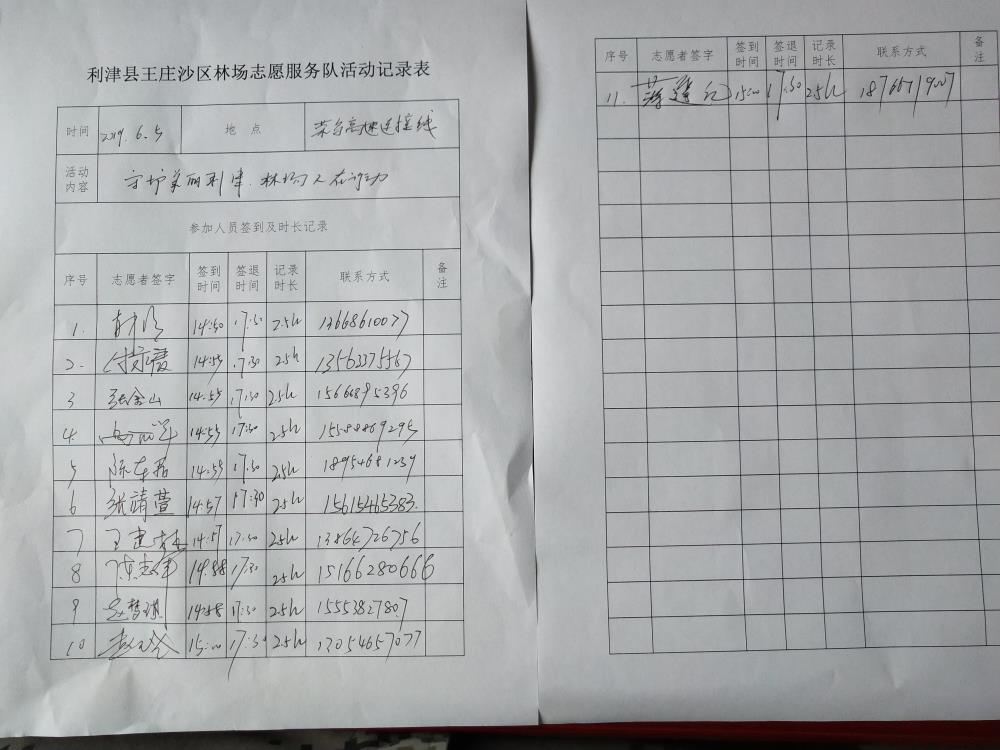 利津县王庄沙区林场志愿服务队活动记录表
时间 2019.6.5 地 点 荣乌高速连接线
活动内容 守护美丽利津.林场人在行动
参加人员签到及时长记录
序号 志愿者签字 签到时间 签退时间 记录时长 联系方式 备注
1. 14:50 17:30 2.5h 13668610077
2. 14:55 17:30 2.5h 13563375567
3 张金山 14:55 17:30 2.5h 15666895396
4. 14:55 17:30 2.5h 15588869295
5 陈东磊 14:55 17:30 2.5h 18954681239
6 张靖萱 14:57 17:30 2.5h 15615465383.
7 王建 14:57 17:30 2.5h 13864726756
8 陈志军 14:58 17:30 2.5h 15166280666
9 赵梦琪 14:58 17:30 2.5h 15553827807
10 15:00 17:30 2.5h 13054657077
序号 志愿者签字 签到时间 签退时间 记录时长 联系方式 备注
11. 15:00 17:30 2.5h 18766719007